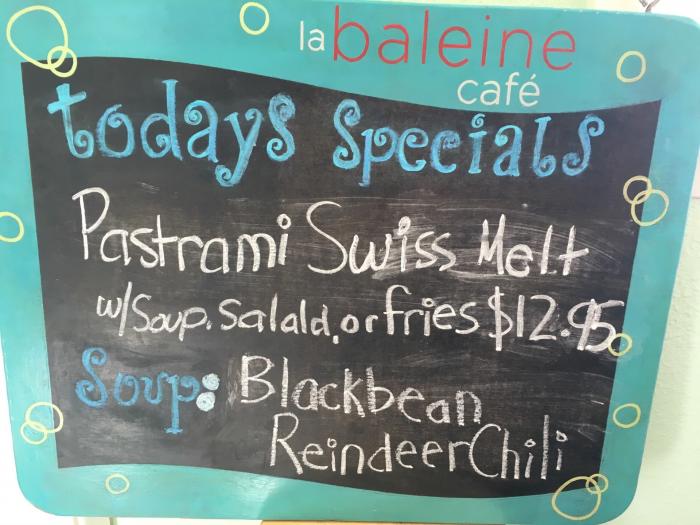 la baleine
café
todays specials
Pastrami Swiss Melt
w/Soup. Salald, or fries $12.95
Soup: Blackbean
Reindeer Chili